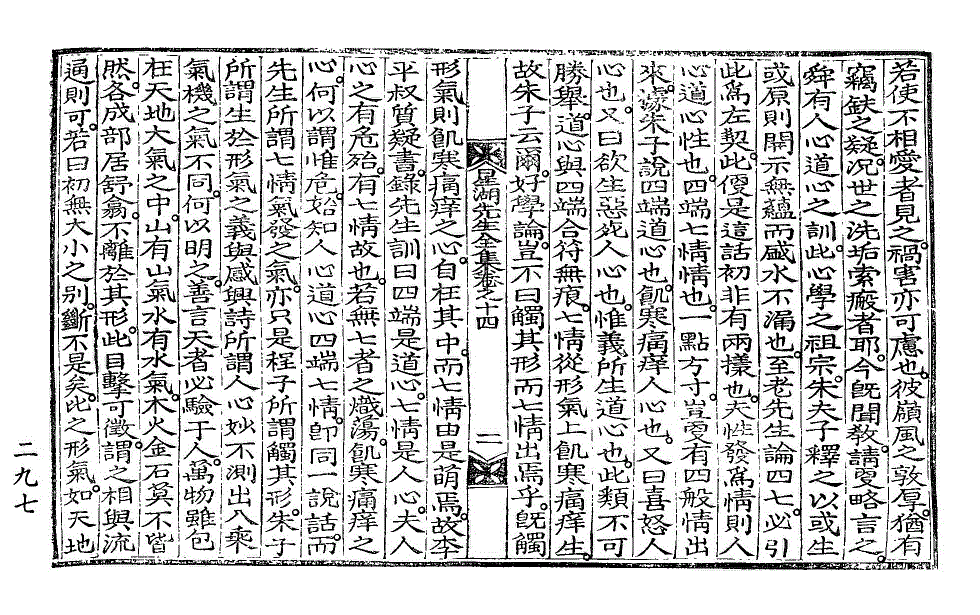 若使不相愛者見之。禍害亦可慮也。彼嶺風之敦厚。猶有
竊鈇之疑。況世之洗垢索瘢者耶。今旣聞敎。請更略言之。
舜有人心道心之訓。此心學之祖宗。朱夫子釋之以或生
或原則開示無蘊而盛水不漏也。至老先生論四七。必引
此爲左契。此便是這話初非有兩樣也。夫性發爲情則人
心道心性也。四端七情情也。一點方寸。豈更有四般情出
來。據朱子說四端道心也。飢寒痛痒人心也。又曰喜怒人
心也。又曰欲生惡死人心也。惟義所生道心也。此類不可
勝舉。道心與四端合符無痕。七情從形氣上飢寒痛痒生。
故朱子云爾。好學論。豈不曰觸其形而七情出焉乎。旣觸
星湖先生全集卷之十四
二
形氣則飢寒痛痒之心。自在其中。而七情由是萌焉。故李
平叔質疑書。錄先生訓曰四端是道心。七情是人心。夫人
心之有危殆。有七情故也。若無七者之熾蕩。飢寒痛痒之
心。何以謂惟危。始知人心道心四端七情。卽同一說話。而
先生所謂七情氣發之氣。亦只是程子所謂觸其形。朱子
所謂生於形氣之義與感興詩所謂人心妙不測出入乘
氣機之氣不同。何以明之。善言天者必驗于人。萬物雖包
在天地大氣之中。山有山氣水有水氣。木火金石莫不皆
然。各成部居舒翕。不離於其形。此目擊可徵。謂之相與流
通則可。若曰初無大小之別。斷不是矣。此之形氣。如天地
二九七